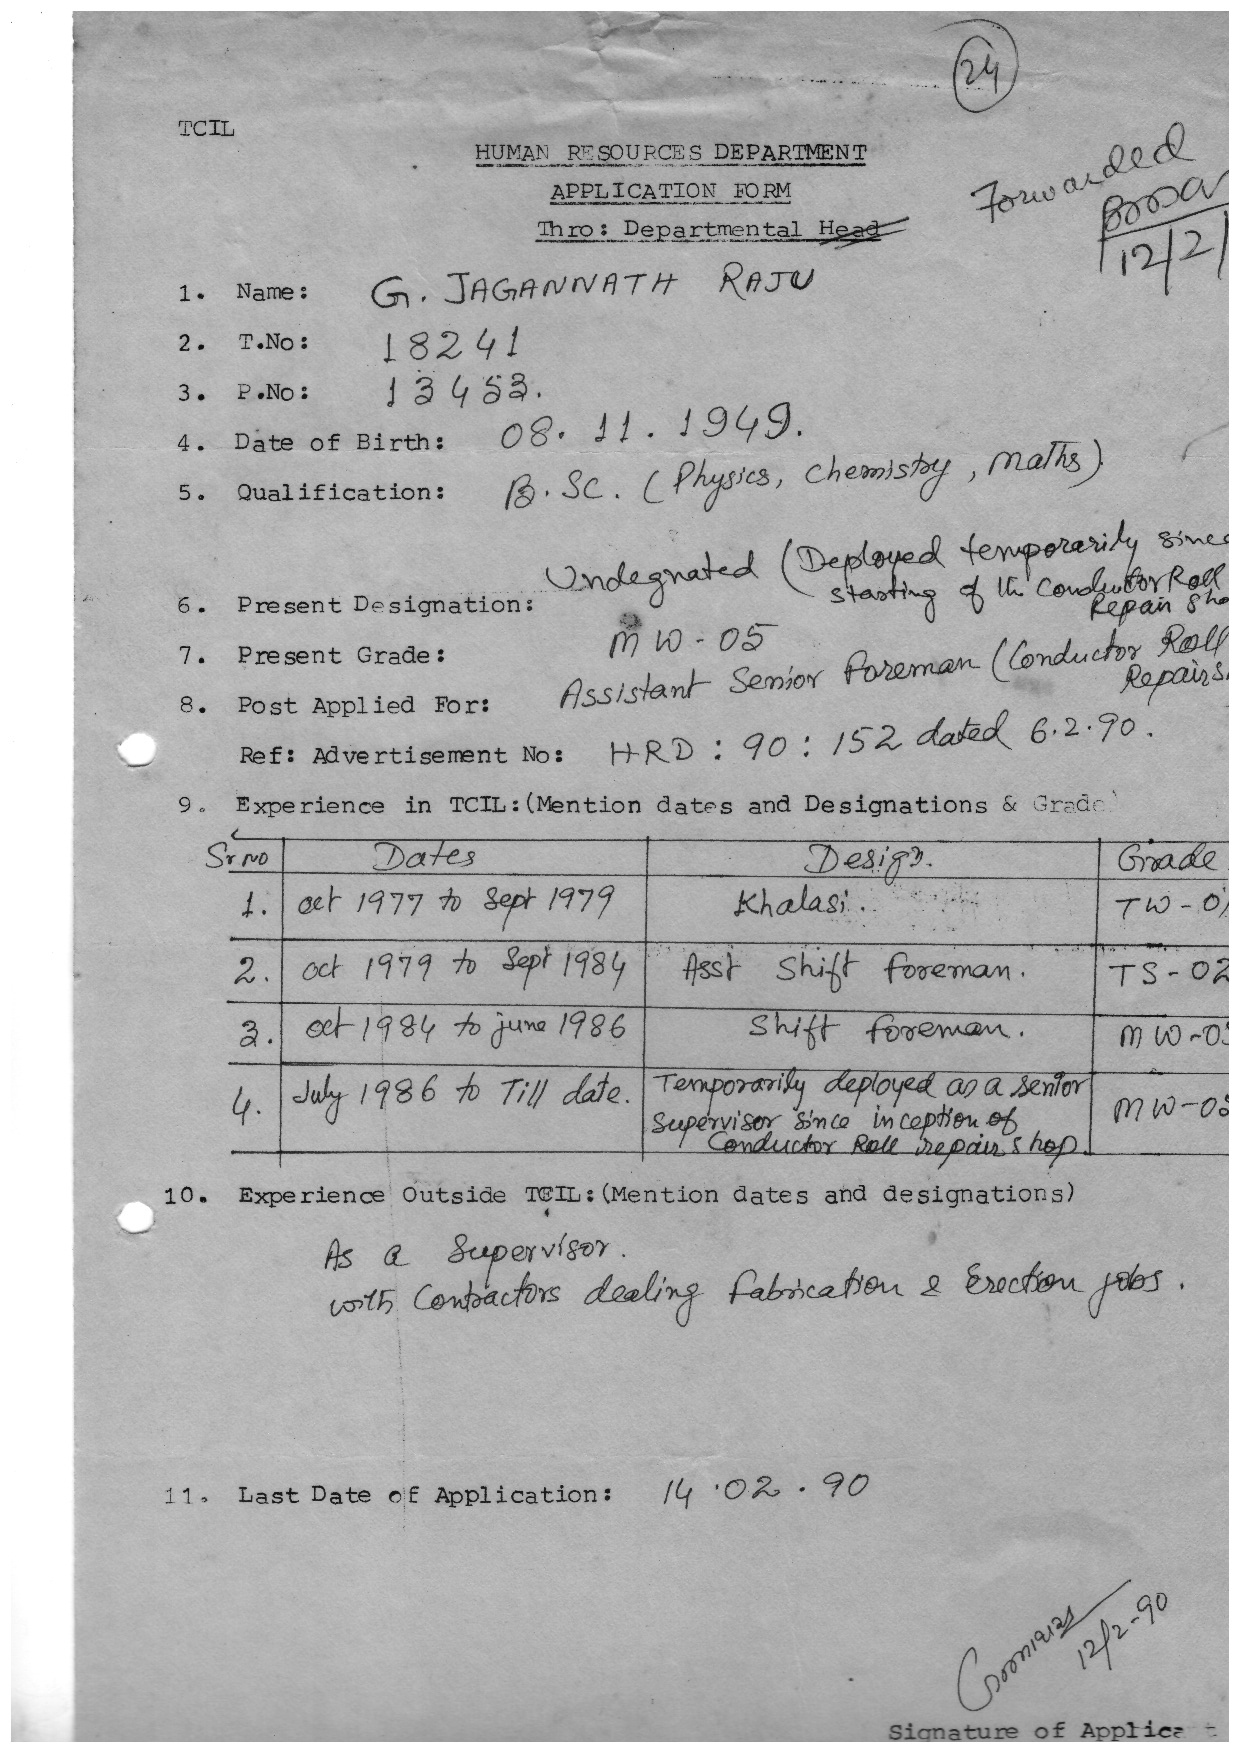 24
TCIL
HUMAN RESOURCES DEPARTMENT
APPLICATION FORM
Thro: Departmental Head
Forwarded
12/2/
1. Name: G. JAGANNATH RAJU
2. T.No: 18241
3. P.No: 13453.
4. Date of Birth: 08. 11. 1949.
5. Qualification: B. Sc. (Physics, chemistry, maths).
6. Present Designation: Undegnated (Deployed temporarily since
starting of the Conductor Roll
Repair Sho
7. Present Grade: MW-05
8. Post Applied For: Assistant Senior Foreman (Conductor Roll
Repairs
Ref: Advertisement No: HRD : 90 : 152 dated 6.2.90.
9. Experience in TCIL:(Mention dates and Designations & Grade)
Sr No Dates Design. Grade
1. oct 1977 to Sept 1979 Khalasi. TW-0
2. oct 1979 to Sept 1984 Asst Shift foreman. TS-02
3. oct 1984 to june 1986 Shift foreman. MW-0
4. July 1986 to Till date. Temporarily deployed as a senior MW-05
supervisor since inception of
Conductor Roll repair shop.
10. Experience Outside TCIL:(Mention dates and designations)
As a Supervisor.
with Contractors dealing fabrication & Erection jobs.
11. Last Date of Application: 14.02.90
12/2-90
Signature of Applicant